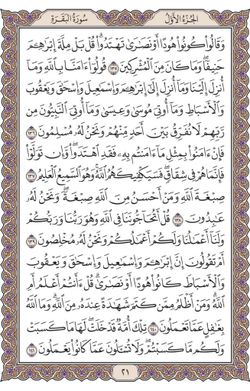 سُورَةُ البَقَرَةِ الجُزْءُ الأَوَّلُ
وَقَالُوا۟ كُونُوا۟ هُودًا أَوْ نَصَـٰرَىٰ تَهْتَدُوا۟ ۗ قُلْ بَلْ مِلَّةَ إِبْرَٰهِـۧمَ
حَنِيفًا ۖ وَمَا كَانَ مِنَ ٱلْمُشْرِكِينَ ١٣٥ قُولُوٓا۟ ءَامَنَّا بِٱللَّهِ وَمَآ
أُنزِلَ إِلَيْنَا وَمَآ أُنزِلَ إِلَىٰٓ إِبْرَٰهِـۧمَ وَإِسْمَـٰعِيلَ وَإِسْحَـٰقَ وَيَعْقُوبَ
وَٱلْأَسْبَاطِ وَمَآ أُوتِىَ مُوسَىٰ وَعِيسَىٰ وَمَآ أُوتِىَ ٱلنَّبِيُّونَ مِن
رَّبِّهِمْ لَا نُفَرِّقُ بَيْنَ أَحَدٍ مِّنْهُمْ وَنَحْنُ لَهُۥ مُسْلِمُونَ ١٣٦
فَإِنْ ءَامَنُوا۟ بِمِثْلِ مَآ ءَامَنتُم بِهِۦ فَقَدِ ٱهْتَدَوا۟ ۖ وَّإِن تَوَلَّوْا۟
فَإِنَّمَا هُمْ فِى شِقَاقٍ ۖ فَسَيَكْفِيكَهُمُ ٱللَّهُ ۚ وَهُوَ ٱلسَّمِيعُ ٱلْعَلِيمُ ١٣٧
صِبْغَةَ ٱللَّهِ ۖ وَمَنْ أَحْسَنُ مِنَ ٱللَّهِ صِبْغَةً ۖ وَنَحْنُ لَهُۥ
عَـٰبِدُونَ ١٣٨ قُلْ أَتُحَآجُّونَنَا فِى ٱللَّهِ وَهُوَ رَبُّنَا وَرَبُّكُمْ
وَلَنَآ أَعْمَـٰلُنَا وَلَكُمْ أَعْمَـٰلُكُمْ وَنَحْنُ لَهُۥ مُخْلِصُونَ ١٣٩
أَمْ تَقُولُونَ إِنَّ إِبْرَٰهِـۧمَ وَإِسْمَـٰعِيلَ وَإِسْحَـٰقَ وَيَعْقُوبَ
وَٱلْأَسْبَاطَ كَانُوا۟ هُودًا أَوْ نَصَـٰرَىٰ ۗ قُلْ ءَأَنتُمْ أَعْلَمُ أَمِ
ٱللَّهُ ۗ وَمَنْ أَظْلَمُ مِمَّن كَتَمَ شَهَـٰدَةً عِندَهُۥ مِنَ ٱللَّهِ ۗ وَمَا ٱللَّهُ
بِغَـٰفِلٍ عَمَّا تَعْمَلُونَ ١٤٠ تِلْكَ أُمَّةٌ قَدْ خَلَتْ ۖ لَهَا مَا كَسَبَتْ
وَلَكُم مَّا كَسَبْتُمْ ۖ وَلَا تُسْـَٔلُونَ عَمَّا كَانُوا۟ يَعْمَلُونَ ١٤١
٢١